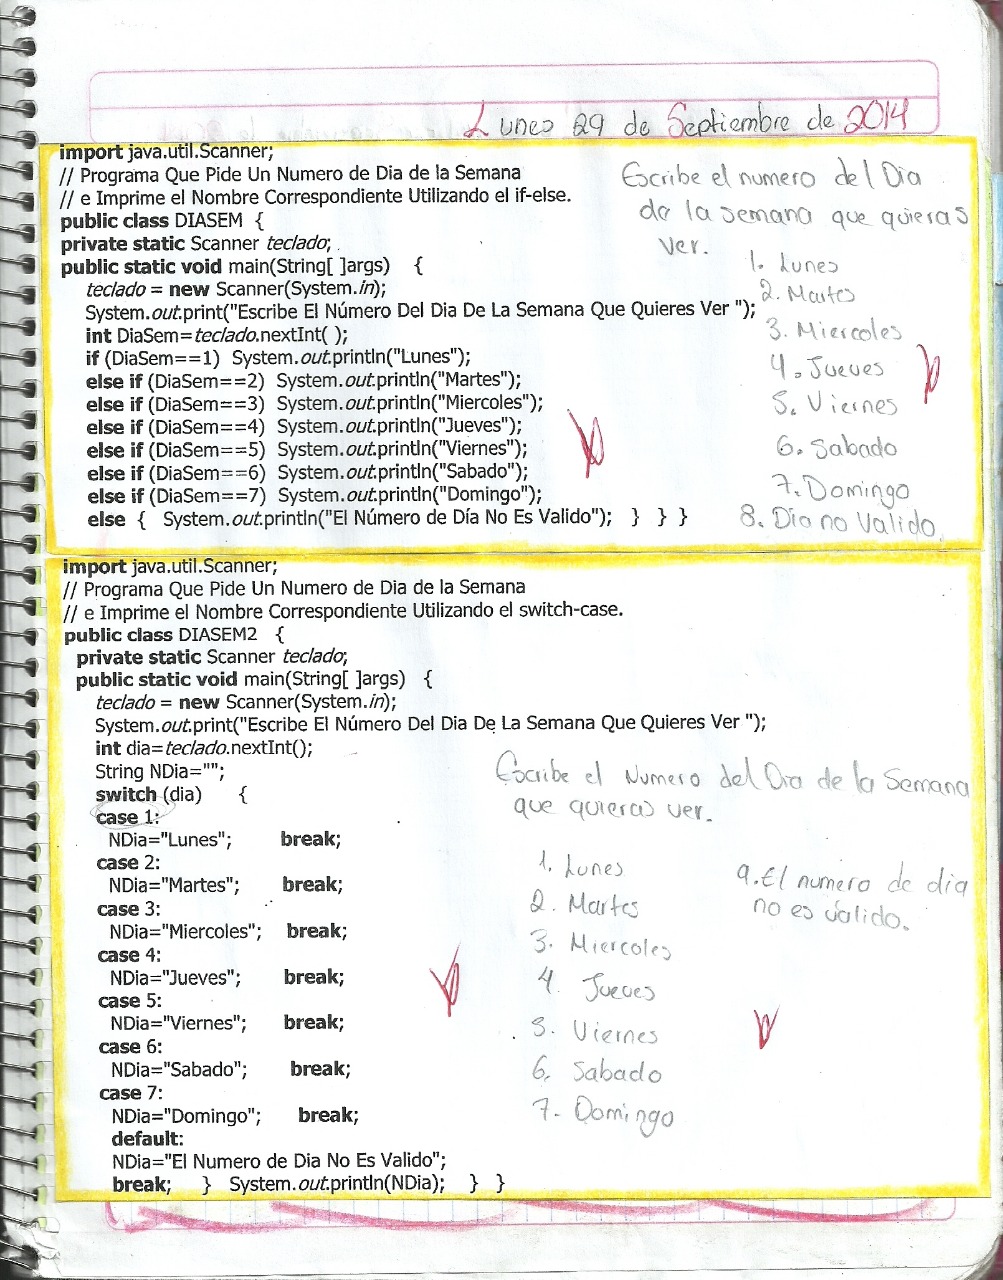 Lunes 29 de Septiembre de 2014
import java.util.Scanner;
// Programa Que Pide Un Numero de Dia de la Semana
// e Imprime el Nombre Correspondiente Utilizando el if-else.
public class DIASEM {
private static Scanner teclado;
public static void main(String[ ]args) {
teclado = new Scanner(System.in);
System.out.print("Escribe El Número Del Dia De La Semana Que Quieres Ver ");
int DiaSem=teclado.nextInt( );
if (DiaSem==1) System.out.println("Lunes");
else if (DiaSem==2) System.out.println("Martes");
else if (DiaSem==3) System.out.println("Miercoles");
else if (DiaSem==4) System.out.println("Jueves");
else if (DiaSem==5) System.out.println("Viernes");
else if (DiaSem==6) System.out.println("Sabado");
else if (DiaSem==7) System.out.println("Domingo");
else { System.out.println("El Número de Día No Es Valido"); } } }
Escribe el numero del Dia
de la semana que quieras
ver.
1. Lunes
2. Martes
3. Miercoles
4. Jueves
5. Viernes
6. Sabado
7. Domingo
8. Dia no Valido.
import java.util.Scanner;
// Programa Que Pide Un Numero de Dia de la Semana
// e Imprime el Nombre Correspondiente Utilizando el switch-case.
public class DIASEM2 {
private static Scanner teclado;
public static void main(String[ ]args) {
teclado = new Scanner(System.in);
System.out.print("Escribe El Número Del Dia De La Semana Que Quieres Ver ");
int dia=teclado.nextInt();
String NDia="";
switch (dia) {
case 1:
NDia="Lunes"; break;
case 2:
NDia="Martes"; break;
case 3:
NDia="Miercoles"; break;
case 4:
NDia="Jueves"; break;
case 5:
NDia="Viernes"; break;
case 6:
NDia="Sabado"; break;
case 7:
NDia="Domingo"; break;
default:
NDia="El Numero de Dia No Es Valido";
break; } System.out.println(NDia); } }
Escribe el Numero del Dia de la Semana
que quieras ver.
1. Lunes
2. Martes
3. Miercoles
4. Jueves
5. Viernes
6. Sabado
7. Domingo
9. El numero de dia
no es valido.